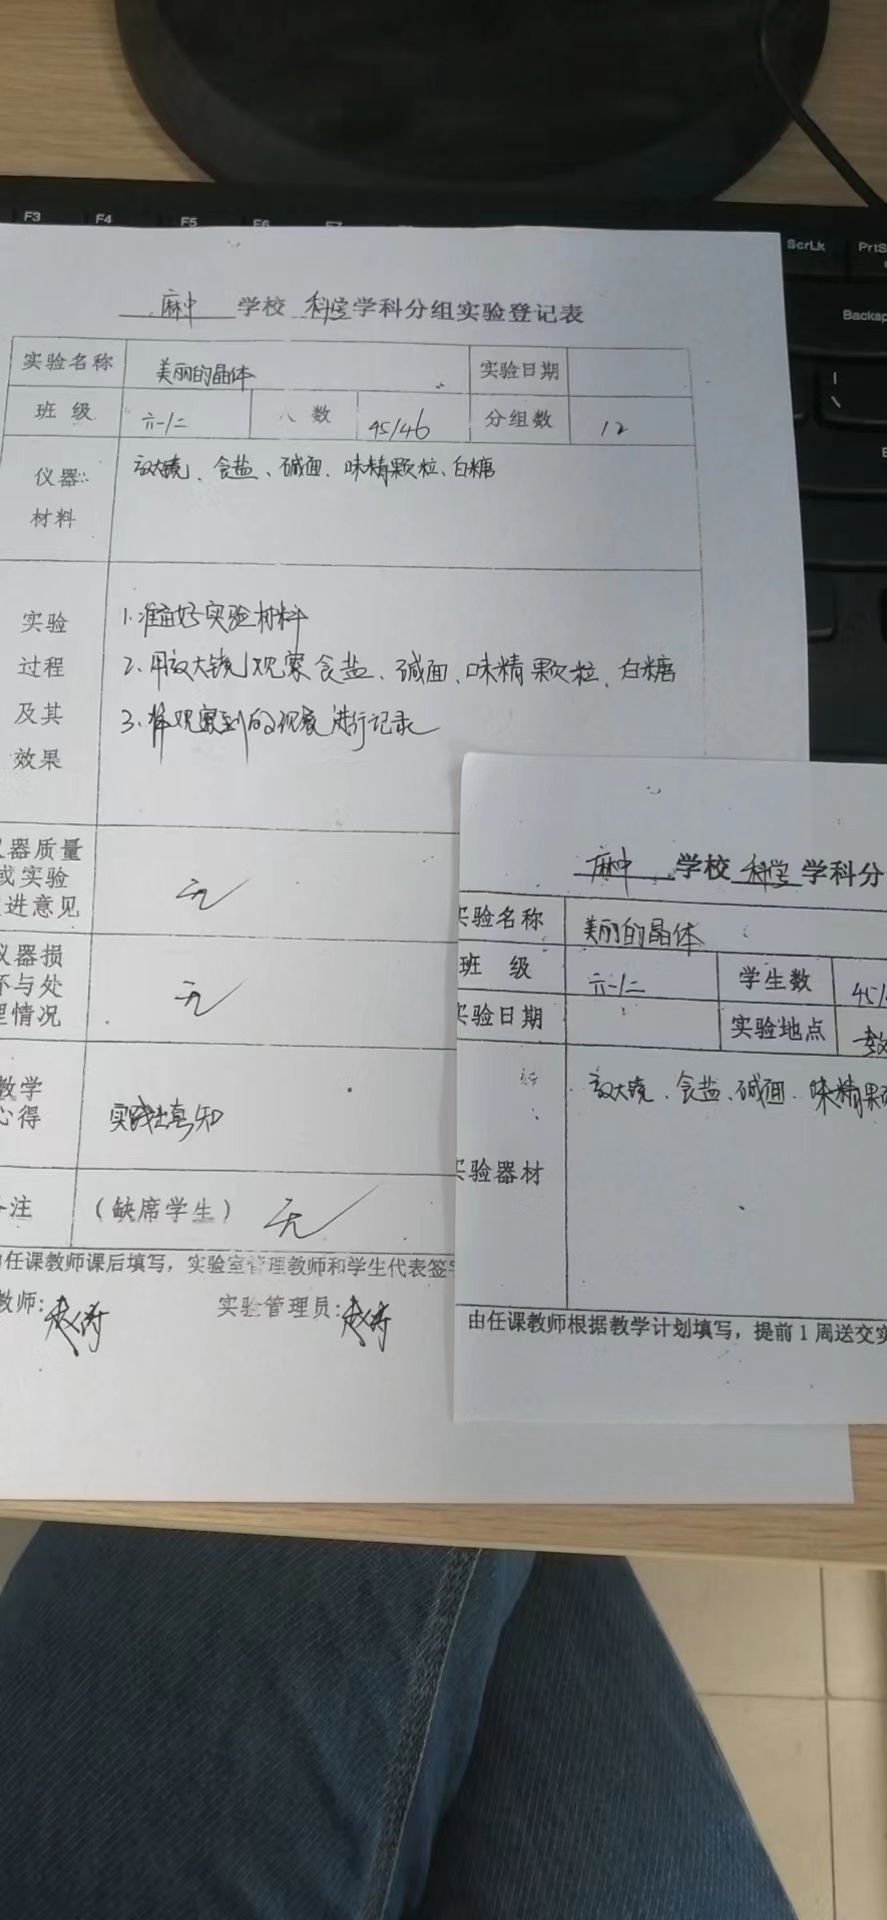 F3 F4 F5 F6 F7 ScrLk PrtS
Backsp
麻中 学校 科学 学科分组实验登记表
实验名称 美丽的晶体 实验日期
班 级 六一/二 人 数 45/46 分组数 12
仪器 放大镜、食盐、碱面、味精颗粒、白糖
材料
实验 1.准备好实验材料
过程 2.用放大镜观察食盐、碱面、味精颗粒、白糖
及其 3.将观察到的现象进行记录
效果
器质量
或实验 无
进意见
仪器损
坏与处 无
理情况
教学
心得 实践出真知
备注 (缺席学生) 无
由任课教师课后填写,实验室管理教师和学生代表签字
教师: 实验管理员:
麻中 学校 科学 学科分
实验名称 美丽的晶体
班 级 六一/二 学生数 45/
实验日期 实验地点 教
实验器材 放大镜、食盐、碱面、味精颗
由任课教师根据教学计划填写,提前1周送交实